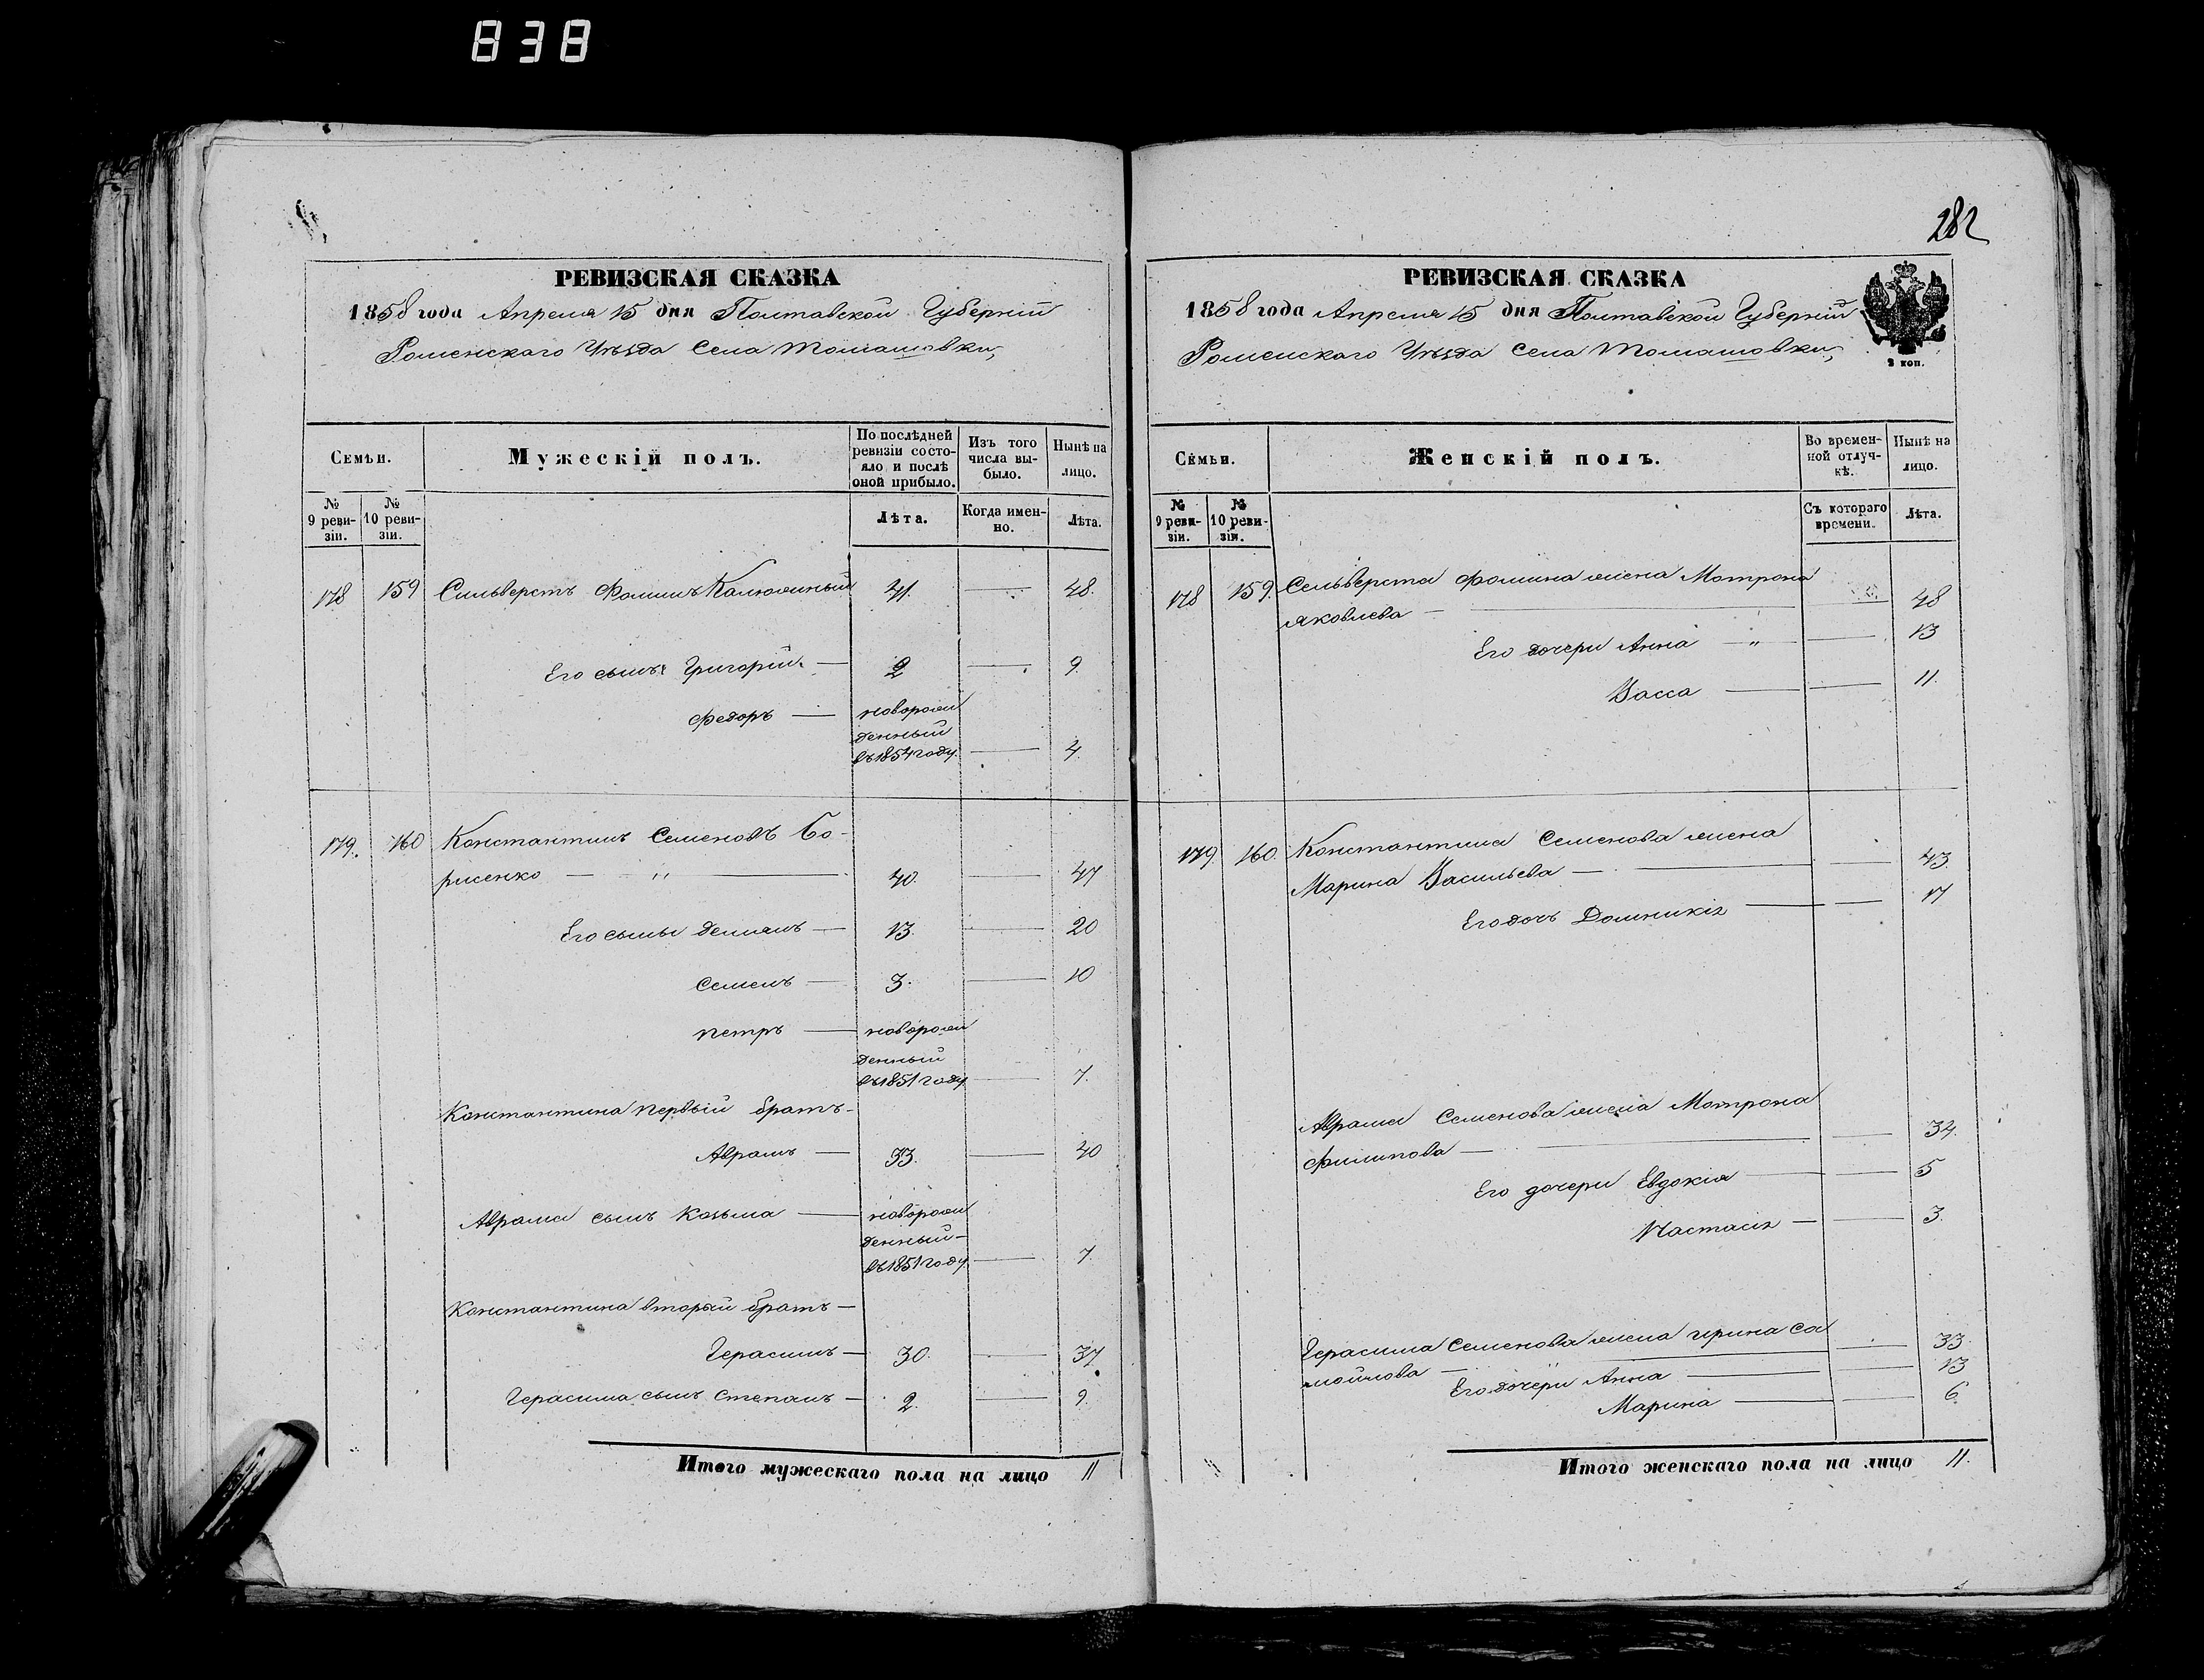 838
РЕВИЗСКАЯ СКАЗКА
1858 года Апреля 15 дня Полтавской Губернiи
Роменскаго Уѣзда Села Томашовки,
Семьи.
Мужескiй полъ.
По послѣдней ревизiи состояло и послѣ оной прибыло.
Изъ того числа выбыло.
Нынѣ на лицо.
№ 9 ревизiи.
№ 10 ревизiи.
Лѣта.
Когда именно.
Лѣта.
178 159 Сильверстъ Фоминъ Калюжный 41. — 48.
Его сынъ Григорiй — 2 — 9.
Федоръ — новорожденный въ 1854 году. — 4.
179. 160 Константинъ Семеновъ Бо-
рисенко — " — 40. — 47
Его сыны Демянъ — 13. — 20
Семенъ — 3. — 10
Петръ — новорожденный въ 1851 году. — 7.
Константина первый братъ-
Аврамъ — 33. — 40
Аврама сынъ Козьма — новорожденный — въ 1851 году. — 7.
Константина вторый братъ —
Герасимъ — 30. — 37.
Герасима сынъ Степанъ — 2. — 9
Итого мужескаго пола на лицо 11
282
РЕВИЗСКАЯ СКАЗКА
1858 года Апреля 15 дня Полтавской Губернiи
Роменскаго Уѣзда Села Томашовки,
2 коп.
Семьи.
Женскiй полъ.
Во временной отлучкѣ.
Нынѣ на лицо.
№ 9 ревизiи.
№ 10 ревизiи.
Съ котораго времени.
Лѣта.
178 159. Сельверста Фомина жена Мотрона
Яковлева — 48
Его дочери Анна — " — 13
Васса — 11.
179. 160. Константина Семенова жена
Марина Васильева — 43.
Его дочь Домникiя — 17
Аврама Семенова жена Мотрона
Филипова — 34.
Его дочери Евдокiя — 5
Настасiя — 3.
Герасима Семенова жена Ирина Са
мойлова — 33
Его дочери Анна — 13
Марина — 6.
Итого женскаго пола на лицо 11.